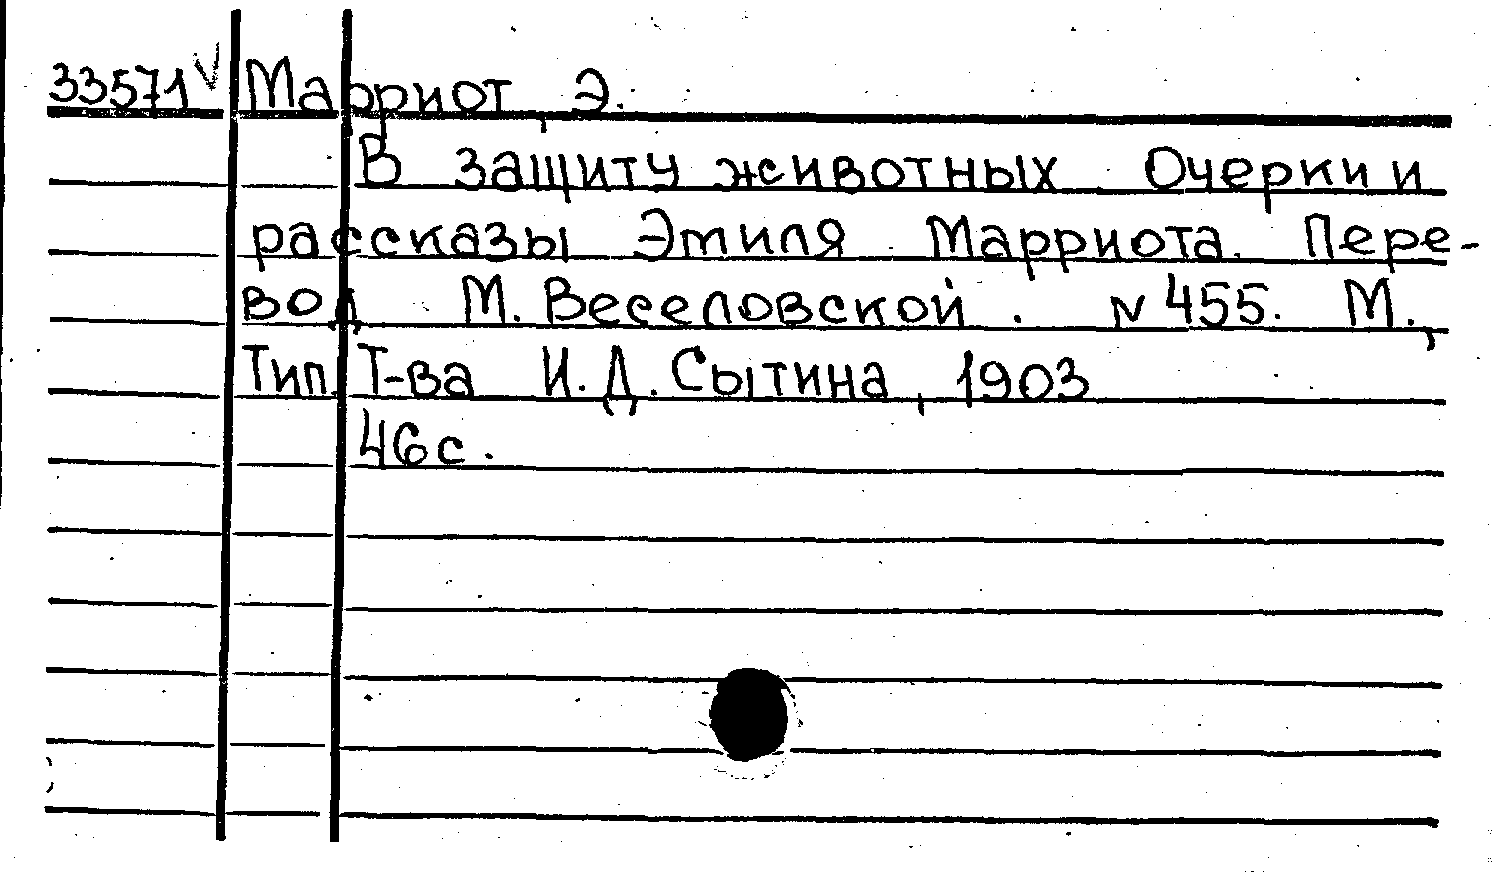 33571 V Марриот, Э.
В защиту животных Очерки и
рассказы Эмиля Марриота. Пере-
вод М. Веселовской. N 455. М.,
Тип. Т-ва И. Д. Сытина, 1903
46 с.